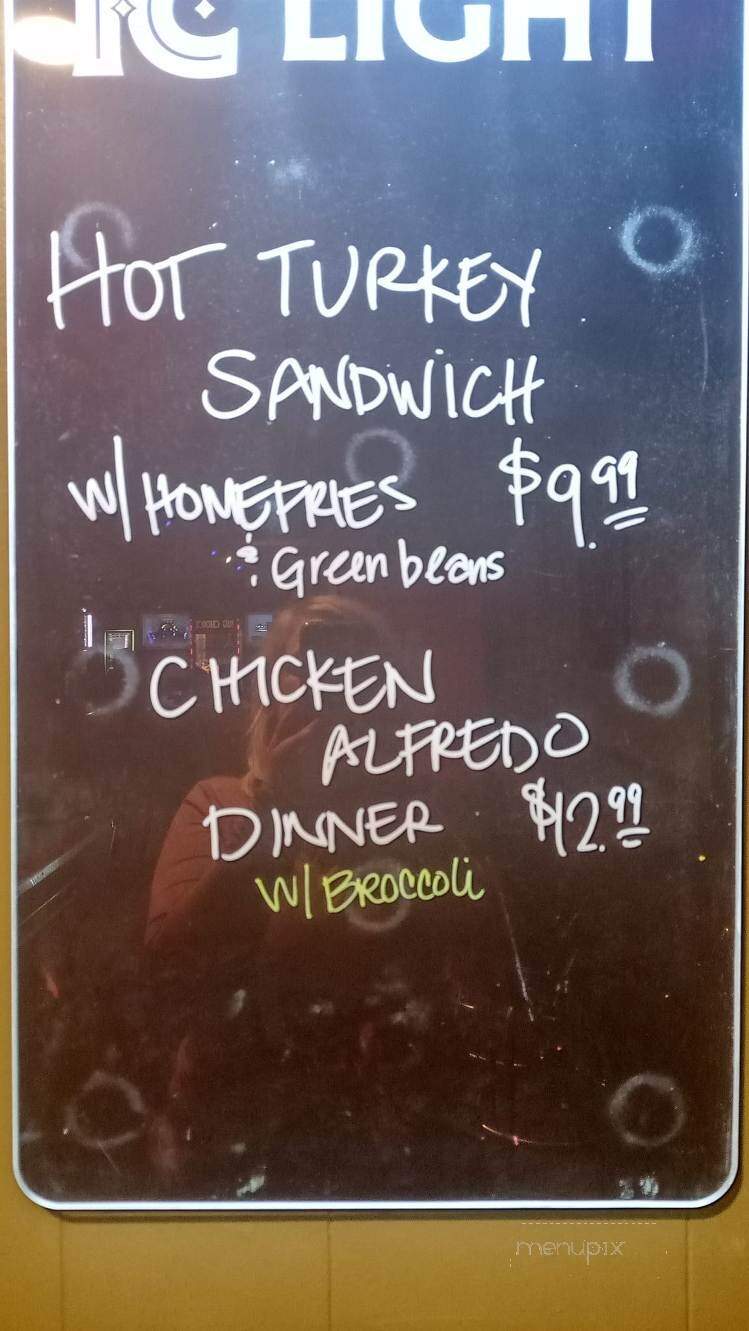 IC LIGHT
HOT TURKEY
SANDWICH
W/ HOMEFRIES $9.99
& Green beans
CHICKEN
ALFREDO
DINNER $12.99
W/ BROCCOLi
menupix